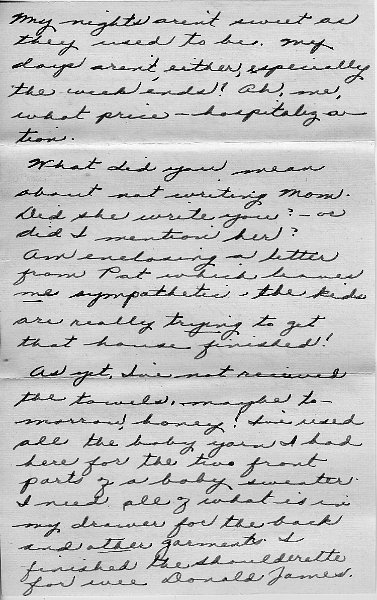 My nights aren't sweet as
they used to be. My
days aren't either, especially
the week ends! Ah, me,
what price – hospitaliza-
tion.
What did you mean
about not writing Mom.
Did she write you? – or
did I mention her?
Am enclosing a letter
from Pat which leaves
me sympathetic. The kids
are really trying to get
that house finished!
As yet, I've not received
the towels, maybe to-
morrow, honey! I've used
all the baby yarn I had
here for the two front
parts of a baby sweater.
I need all of what is in
my drawer for the back
and other garments. I
finished the shoulderette
for wee Donald James.